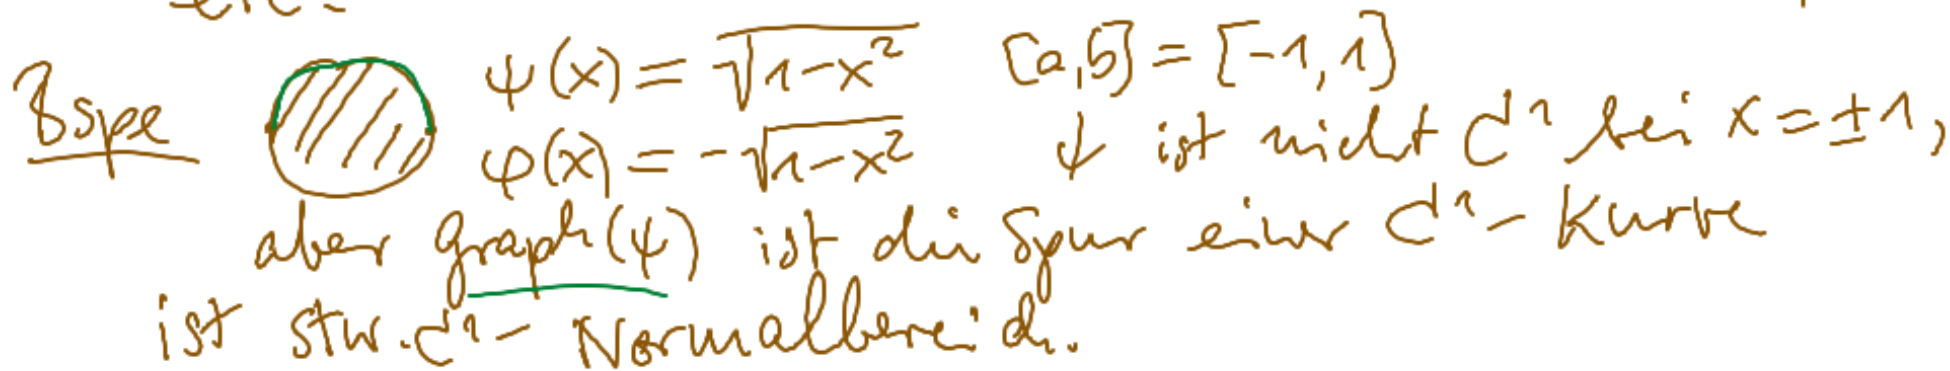 Bspe ψ(x) = √(1-x²) [a,b] = [-1,1]
φ(x) = -√(1-x²) ψ ist nicht C¹ bei x = ±1,
aber graph(ψ) ist die Spur einer C¹-Kurve
ist stw. C¹-Normalbereich.